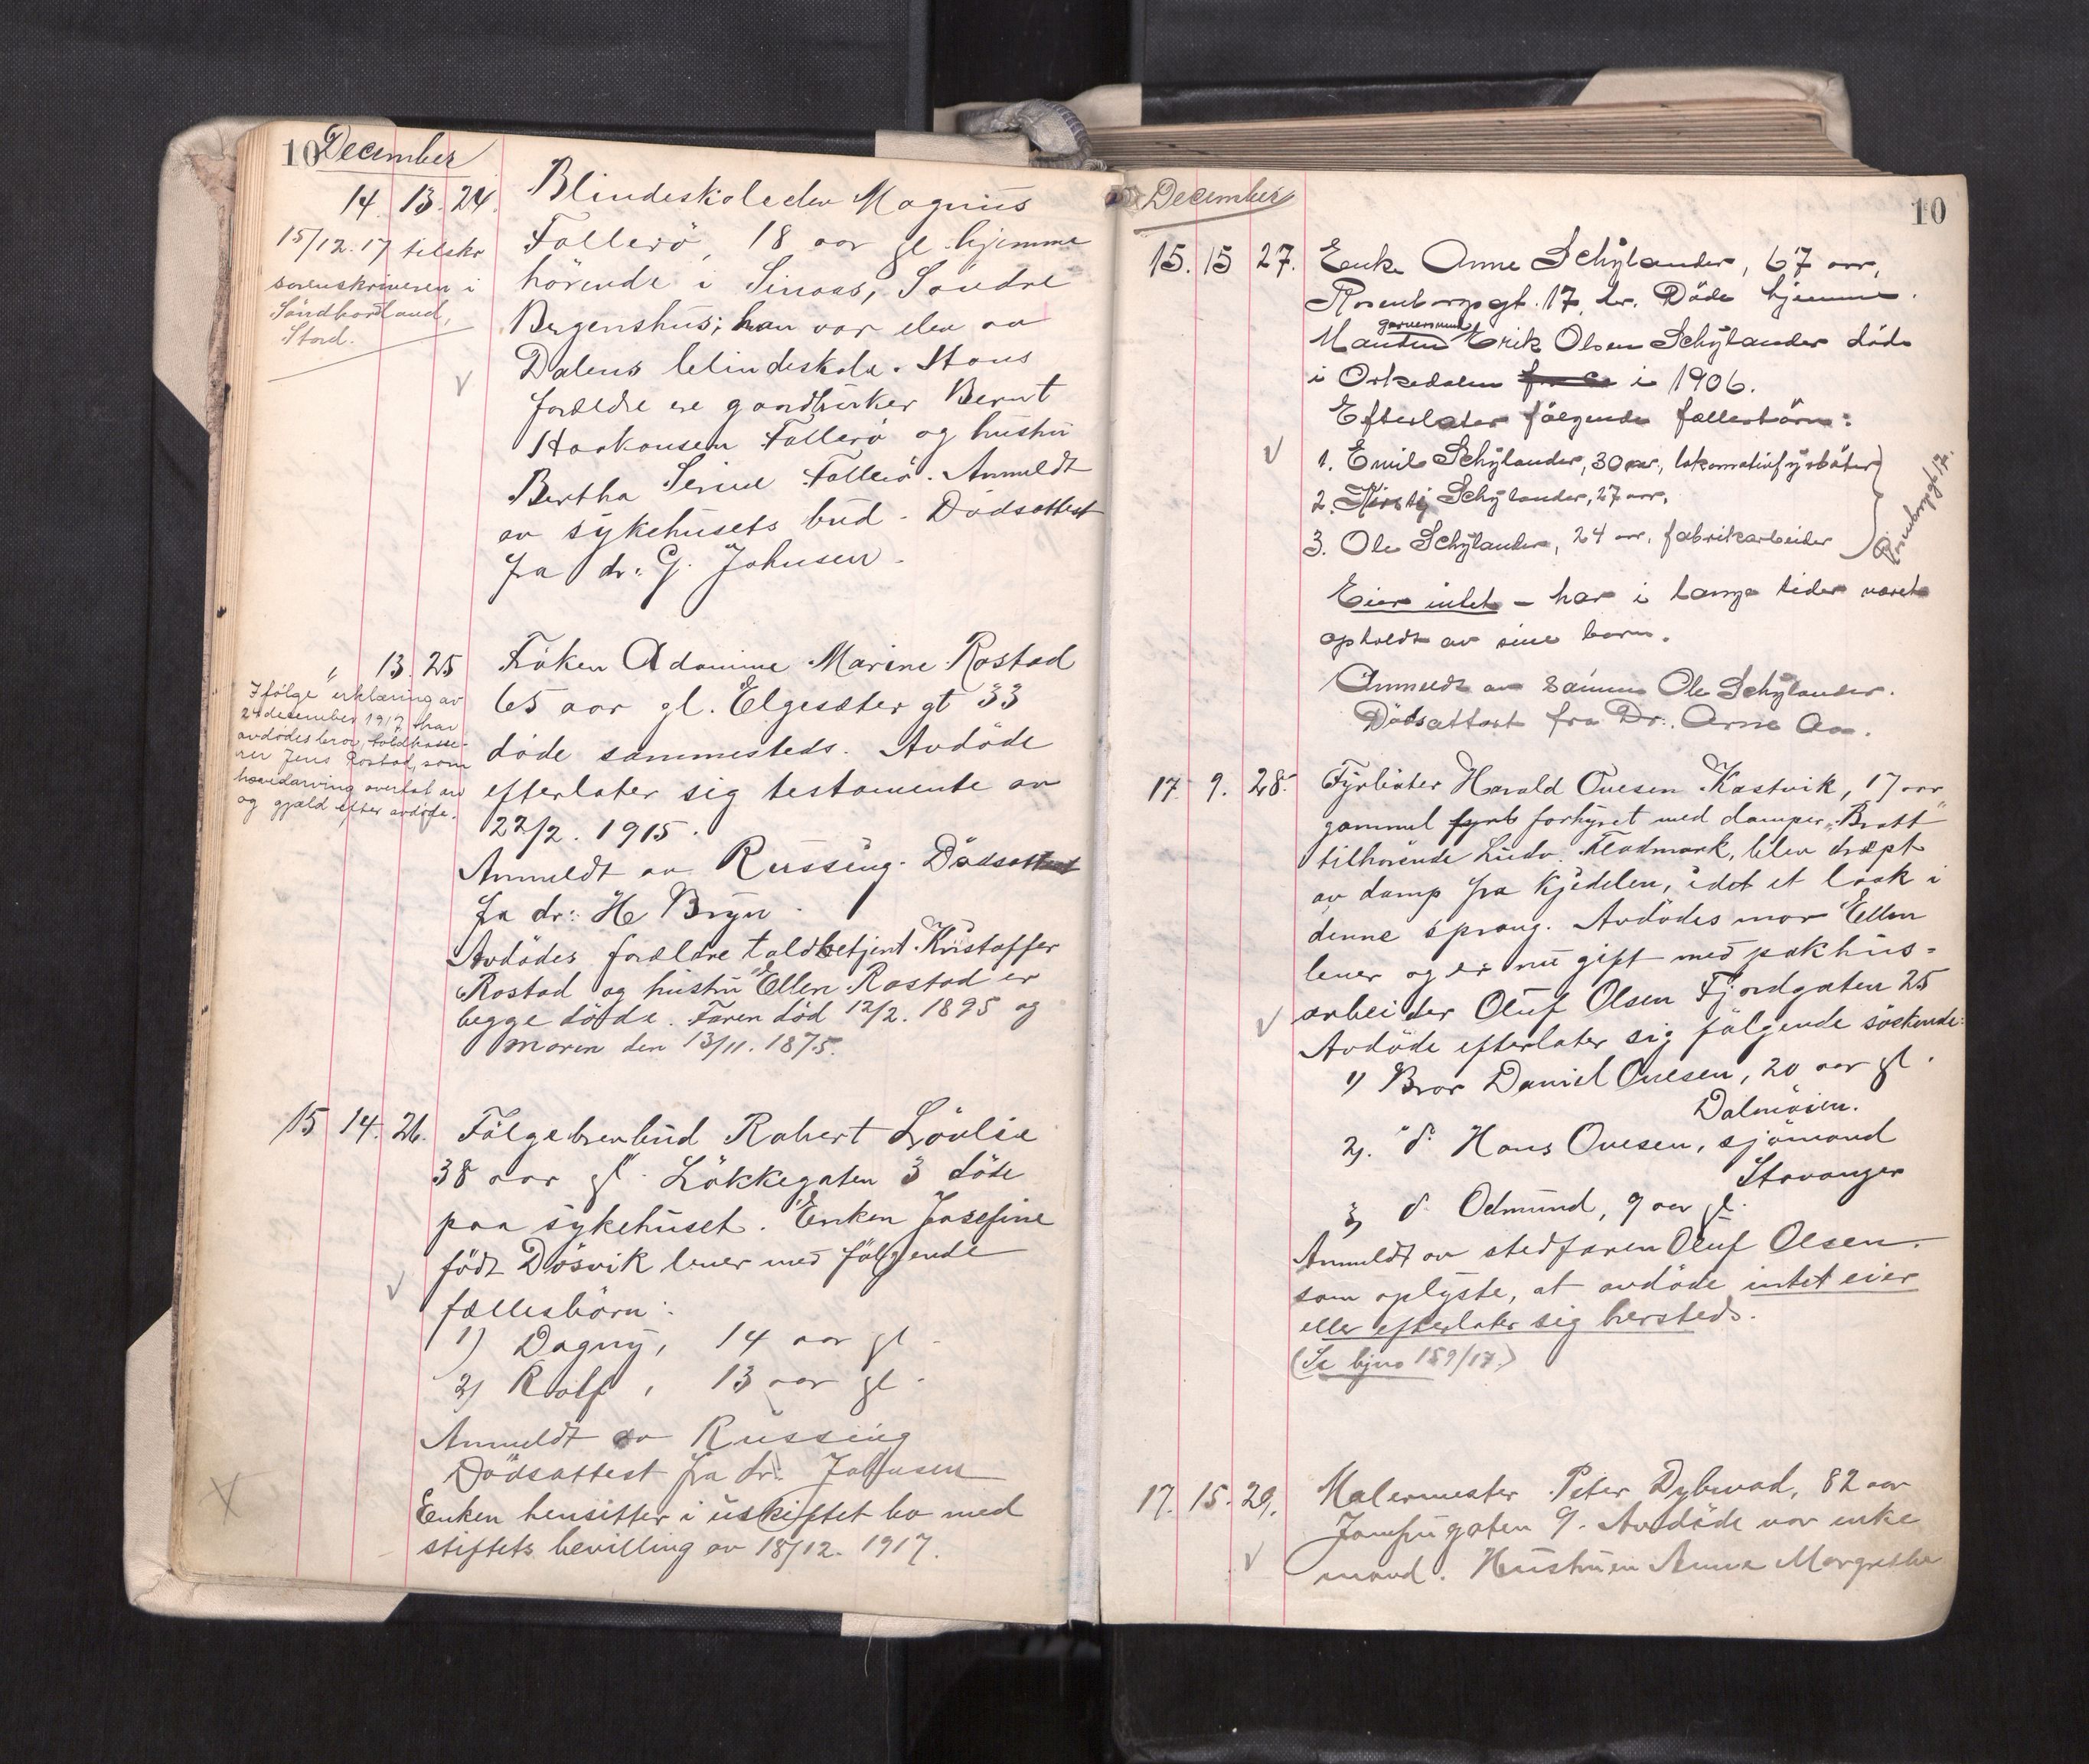 10 December
14. 13. 24. Blindeskoleelev Magnus
Follerö, 18 aar gl. hjemme
hörende i Sinoas, Söndre
Bergenshus; han var elev av
Dalens blindeskole. Hans
forældre ere gaardbruker Bernt
Haakonsen Follerö og hustru
Bertha Serine Follerö. Anmeldt
av sykehusets bud. Dödsattest
fra dr: G. Johnsen.
15/12.17 tilskr
sorenskriveren i
Söndhordland,
Stord.
" 13. 25 Fröken Adamine Marine Rostad
65 aar gl. Elgesæter gt 33
döde sammesteds. Avdöde
efterlater sig testamente av
22/2. 1915.
Anmeldt av Russing. Dödsattest
fra dr: H Bryn.
Avdödes forældre toldbetjent Kristoffer
Rostad og hustru Ellen Rostad er
begge döde. Faren död 12/2. 1895 og
moren den 13/11. 1875.
Ifölge erklæring av
24 december 1917 har
avdödes bror, toldkasse-
rer Jens Rostad, som
hovedarving overtat arv
og gjæld efter avdöde.
15 14. 26. Fölgebrevbud Robert Lövlie
38 aar gl. Lökkegaten 3 döde
paa sykehuset. Enken Josefine
födt Dösvik lever med fölgende
fællesbörn:
1) Dagny, 14 aar gl.
2) Rolf, 13 aar gl.
Anmeldt av Russing
Dödsattest fra dr: Johnsen
Enken hensitter i uskiftet bo med
stiftets bevilling av 18/12. 1917.
X
December 10
15. 15 27. Enke Anne Schylander, 67 aar,
Rosenborggt. 17, her. Döde hjemme.
garversvend
Manden Erik Olsen Schylander döde
i Orkedalen i 1906.
Efterlater fölgende fællesbörn:
1. Emil Schylander, 30 aar, lokomotivfyrböter
2. Kirsti Schylander, 27 aar,
3. Ole Schylander, 24 aar, fabrikarbeider
Rosenborggt 17.
Eier intet – har i lange tider været
opholdt av sine barn.
Anmeldt av sönnen Ole Schylander.
Dödsattest fra Dr: Arne Aa.
17. 9. 28. Fyrböter Harald Ovesen Kastvik, 17 aar
gammel fyrb forhyret med damper "Bratt"
tilhörende Ludv. Fladmark, blev dræpt
av damp fra kjedelen, idet et laak i
denne sprang. Avdödes mor Ellen
lever og er nu gift med pakhus-
arbeider Oluf Olsen Fjordgaten 25
Avdöde efterlater sig fölgende söskende:
1) Bror Daniel Ovesen, 20 aar gl.
Dalmöien.
2) d: Hans Ovesen, sjömand
Stavanger
3) d: Odmund, 9 aar gl.
Anmeldt av stedfaren Oluf Olsen.
som oplyste, at avdöde intet eier
eller efterlater sig hersteds.
(Se bjno 159/17.)
17. 15. 29. Malermester Peter Dybwad, 82 aar
Jomfrugaten 9. Avdöde var enke
mand. Hustruen Anne Margrethe